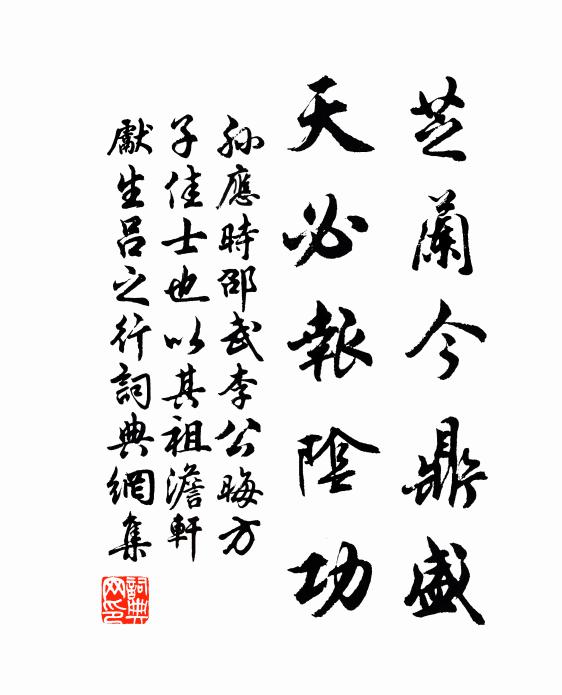 芝蘭今鼎盛
天必報陰功
孫應時邵武李公晦方
子佳士也以其祖澹軒
獻生呂之行詞典網集
詞典網印